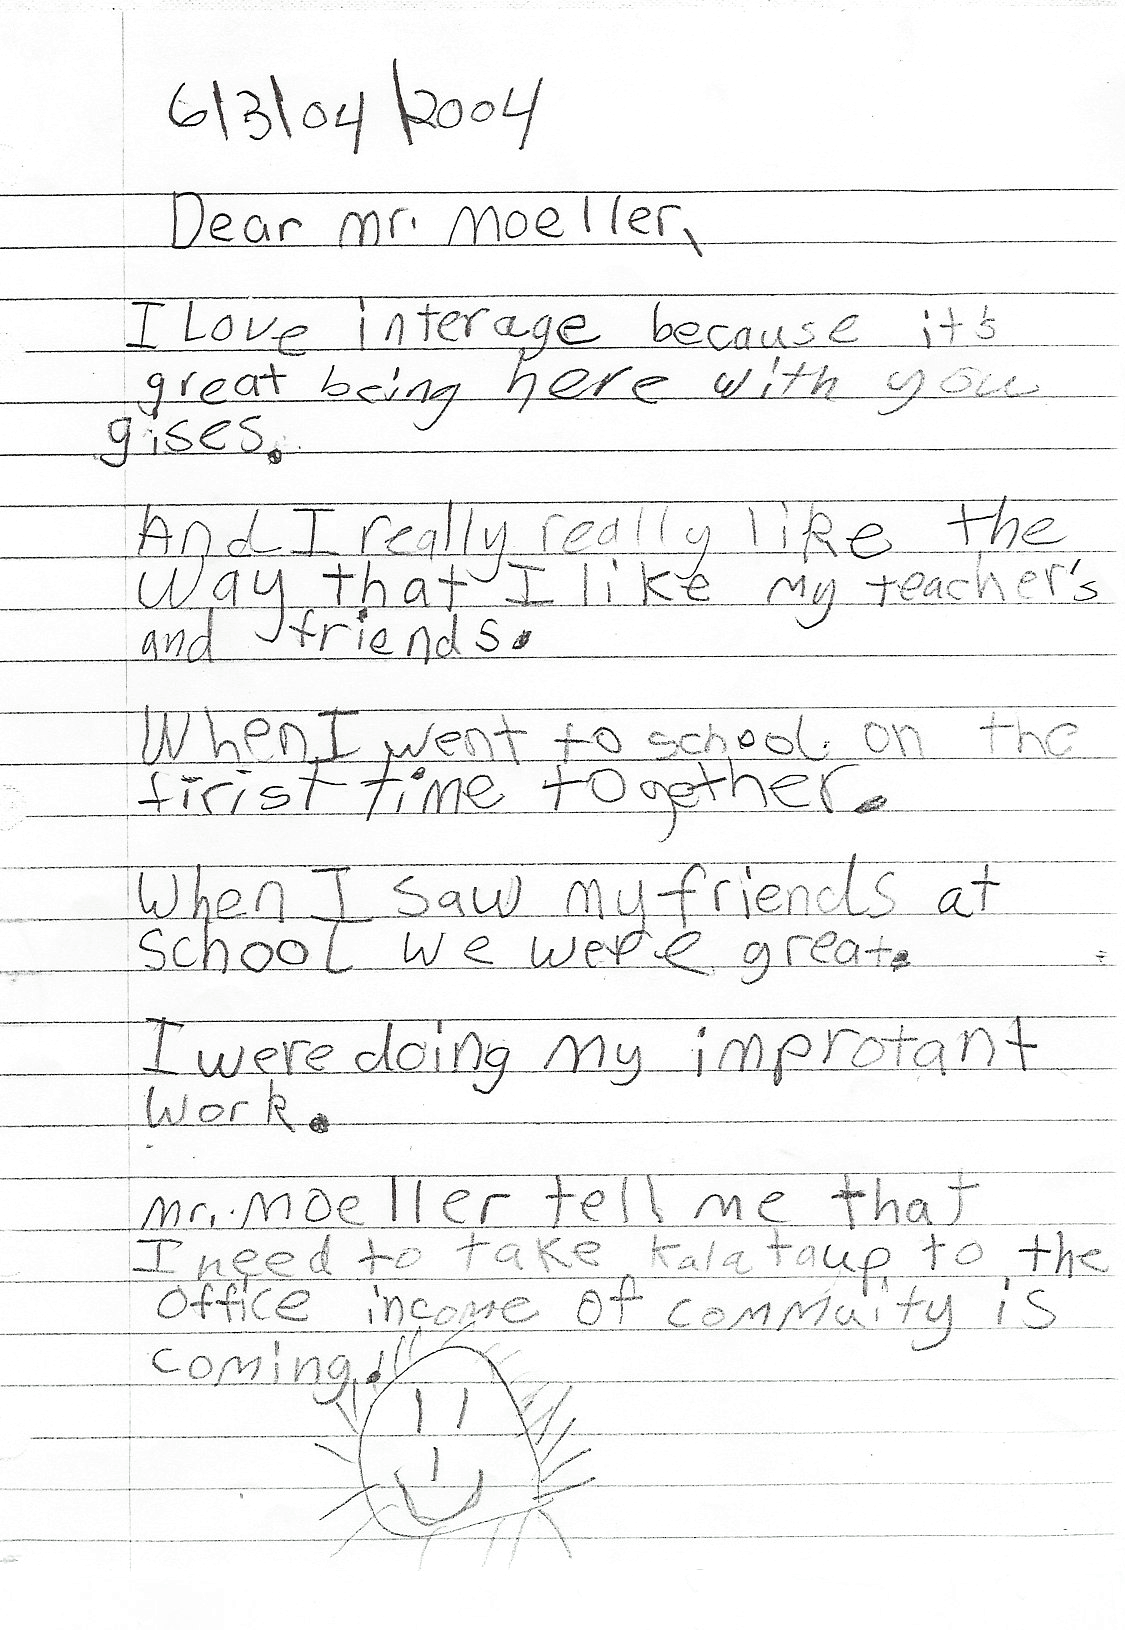 6/3/04/2004
Dear Mr. Moeller,
I Love interage because it's
great being here with you
gises.
And I really really like the
way that I like my teacher's
and friends.
When I went to school on the
firist time together.
When I saw my friends at
school we were great.
I were doing my improtant
work.
Mr. Moeller tell me that
I need to take kalataup to the
office income of commuity is
coming!